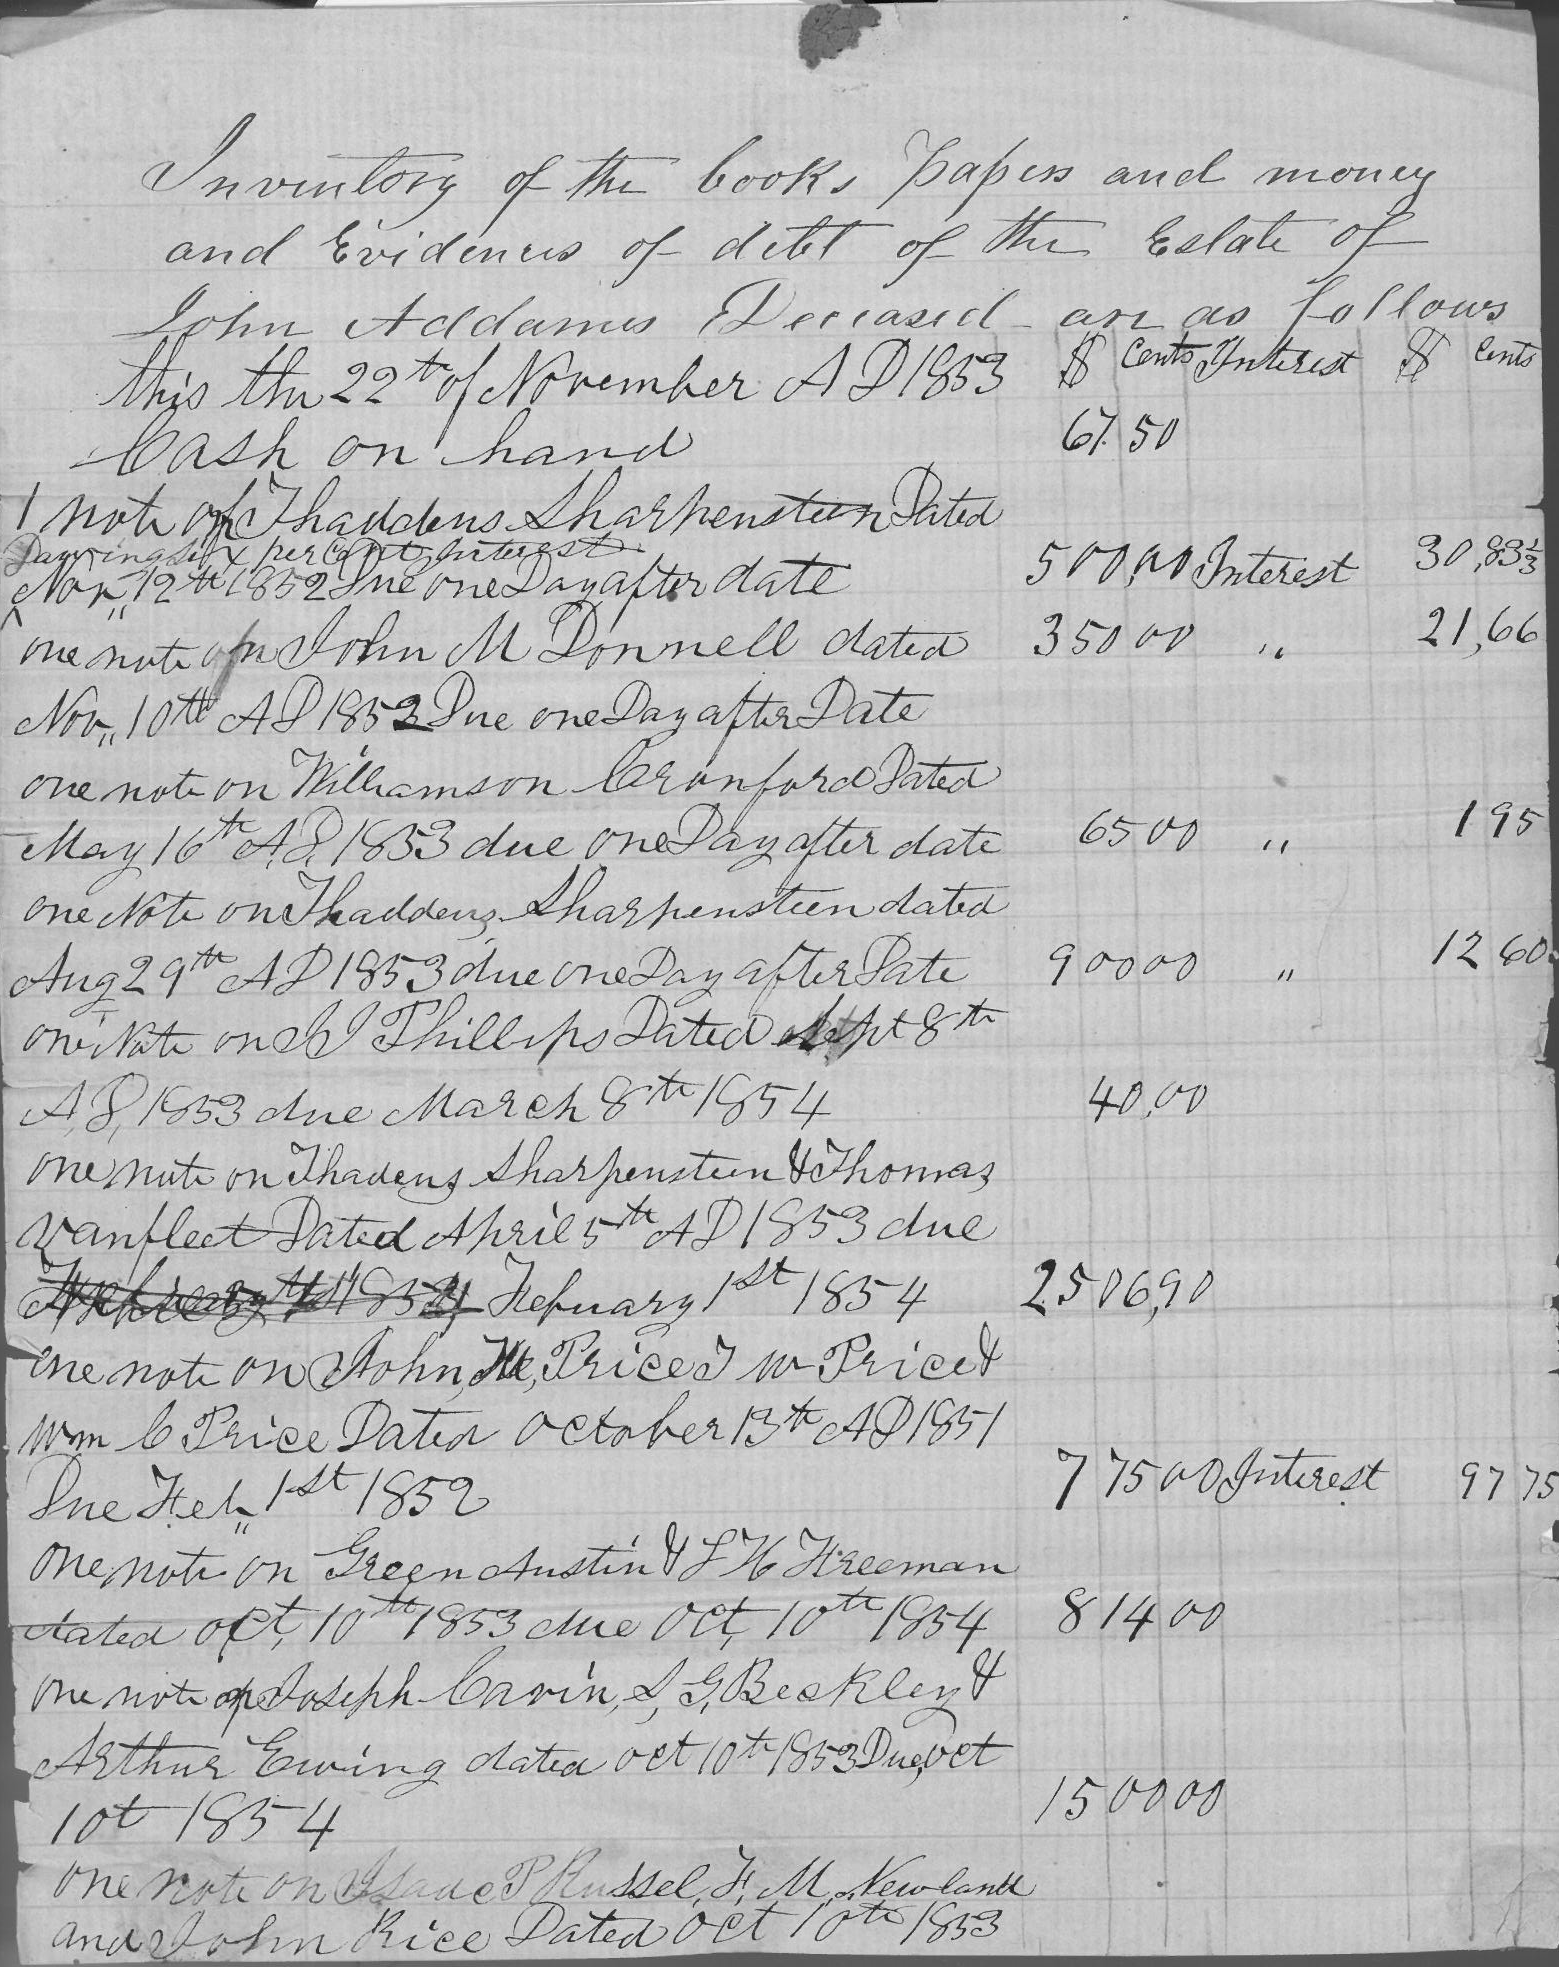 Inventory of the books Papers and money
and Evidences of debt of the Estate of
John Addames Deceased are as follows
this the 22th of November A D 1853 $ Cents Interest $ Cents
Cash on hand 67.50
1 note on Thaddeus Sharpensteen Dated
Drawing six per Cent Interest
Nov,, 12th 1852 Due one Day after date 500,00 Interest 30,83 1/3
one note on John M Donnell dated 350 00 ,, 21,66
Nov,, 10th A D 1852 Due one Day after Date
one note on Williamson Cranford Dated
May 16th A,D, 1853 due one Day after date 65 00 ,, 1 95
one Note on Thaddeus Sharpensteen dated
Aug 29th A D 1853 due one Day after Date 900 00 ,, 12 60
one Note on J J Phillips Dated Sept 8th
A,D, 1853 due March 8th 1854 40,00
one note on Thadeus Sharpensteen & Thomas
Vanfleet Dated April 5th A D 1853 due
Febuary 1st 1854 2506,90
one note on John, Price J W Price &
Wm C Price Dated October 13th A D 1851
Due Feb,, 1st 1852 775 00 Interest 97 75
one note on Green Austin & L H Freeman
dated oct, 10th 1853 due Oct, 10th 1854 814 00
one note on Joseph Cavin, S, G, Beckley &
Arthur Ewing dated oct 10th 1853 Due, oct
10t 1854 1500 00
one note on Isaac P Russel, F, M, Newland
and John Rice Dated Oct 10th 1853